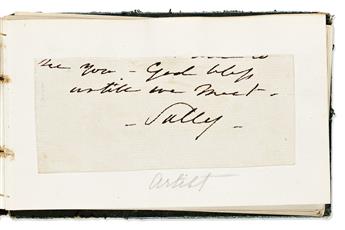 you - God bless
untill we meet -
- Sully -
Artist